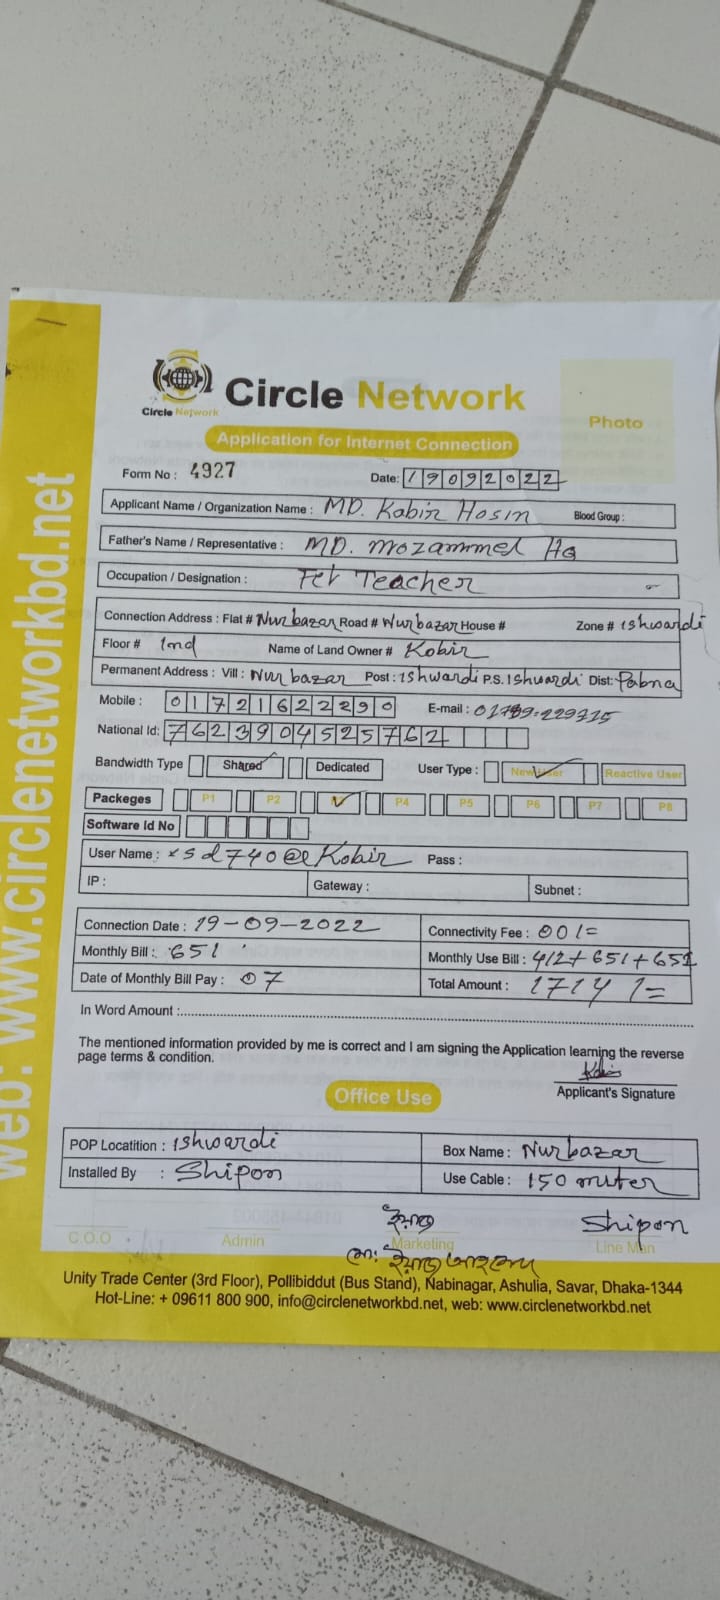 web: www.circlenetworkbd.net
Circle Network
Circle Network
Photo
Application for Internet Connection
Form No : 4927 Date: 19092022
Applicant Name / Organization Name : MD. Kabir Hosin Blood Group :
Father's Name / Representative : MD. Mozammel Hq
Occupation / Designation : Teacher
Connection Address : Flat # Nurbazar Road # Nurbazar House # Zone # ishwardi
Floor # 1nd Name of Land Owner # Kobir
Permanent Address : Vill : Nurbazar Post : ishwardi P.S. Ishwardi Dist: Pabna
Mobile : 01721622290 E-mail :
National Id: 7623904525762
Bandwidth Type Shared Dedicated User Type : New User Reactive User
Packeges P1 P2 P4 P5 P6 P7 P8
Software Id No
User Name : Pass :
IP : Gateway : Subnet :
Connection Date : 19-09-2022 Connectivity Fee : 001=
Monthly Bill : 651 Monthly Use Bill : 412+651+651
Date of Monthly Bill Pay : 07 Total Amount : 1714 1=
In Word Amount :
The mentioned information provided by me is correct and I am signing the Application learning the reverse
page terms & condition.
Applicant's Signature
Office Use
POP Locatition : ishwardi Box Name : Nurbazar
Installed By : Shipon Use Cable : 150 muter
Shipon
C.O.O Admin Marketing Line Man
Unity Trade Center (3rd Floor), Pollibiddut (Bus Stand), Nabinagar, Ashulia, Savar, Dhaka-1344
Hot-Line: + 09611 800 900, info@circlenetworkbd.net, web: www.circlenetworkbd.net